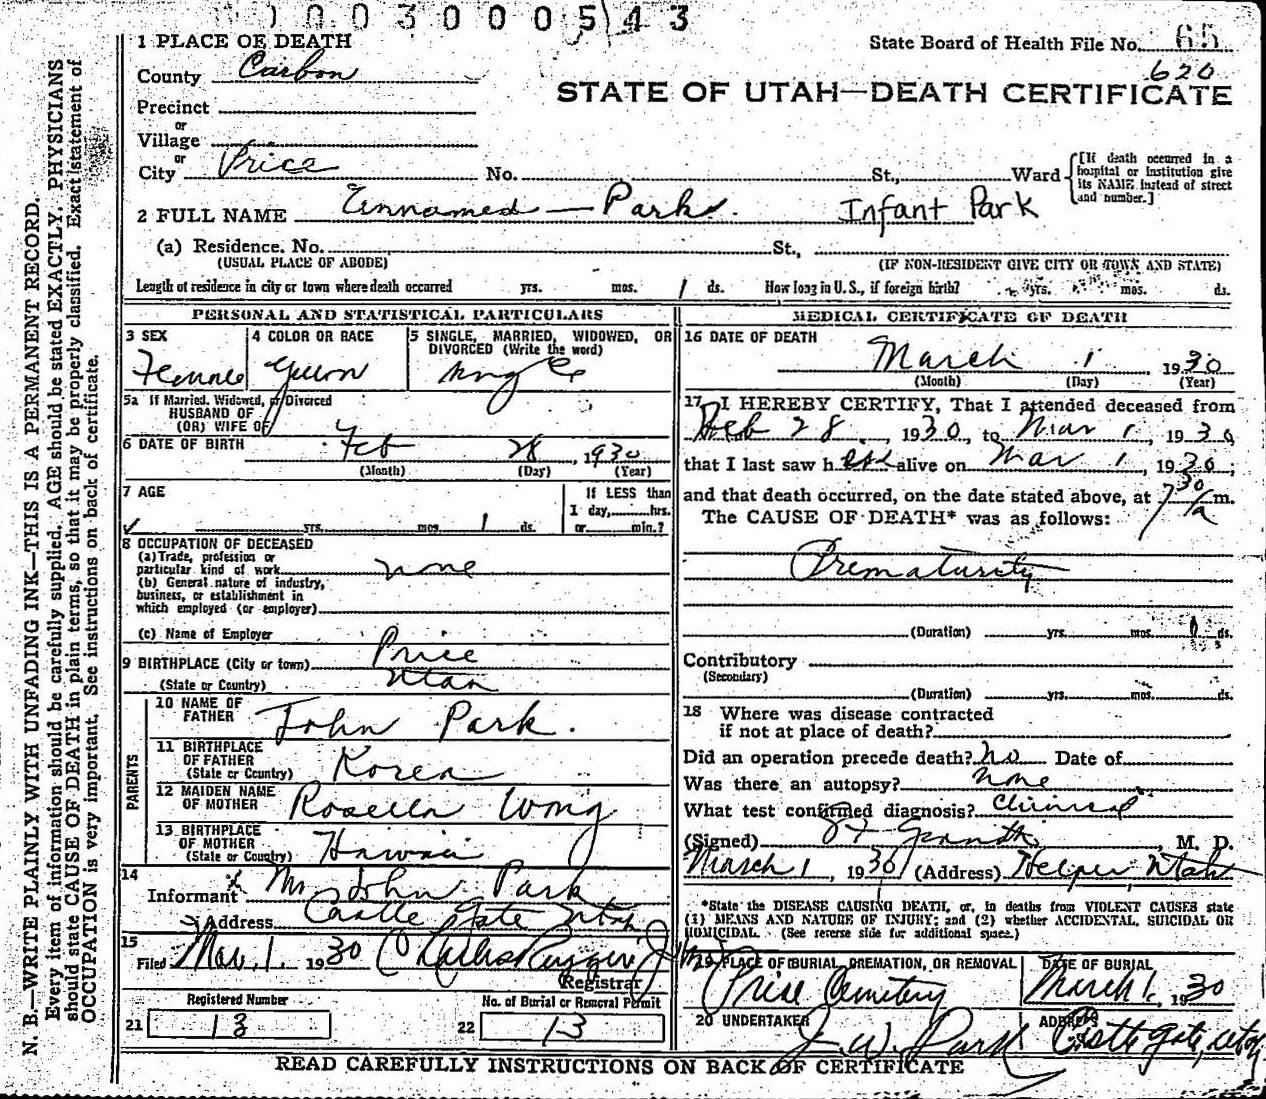 0003000543
1 PLACE OF DEATH
State Board of Health File No. 65
County Carbon
620
STATE OF UTAH—DEATH CERTIFICATE
Precinct
or
Village
or
City Price No. St., Ward
[If death occurred in a hospital or institution give its NAME instead of street and number.]
2 FULL NAME Unnamed — Park. Infant Park
(a) Residence. No. St.,
(USUAL PLACE OF ABODE) (IF NON-RESIDENT GIVE CITY OR TOWN AND STATE)
Length of residence in city or town where death occurred yrs. mos. 1 ds. How long in U. S., if foreign birth? yrs. mos. ds.
PERSONAL AND STATISTICAL PARTICULARS
3 SEX
Female
4 COLOR OR RACE
5 SINGLE, MARRIED, WIDOWED, OR DIVORCED (Write the word)
single
5a If Married, Widowed, or Divorced
HUSBAND OF
(OR) WIFE OF
6 DATE OF BIRTH Feb 28, 1930
(Month) (Day) (Year)
7 AGE
yrs. mos. 1 ds.
If LESS than
1 day, hrs.
or min.?
8 OCCUPATION OF DECEASED
(a) Trade, profession or
particular kind of work none
(b) General nature of industry,
business, or establishment in
which employed (or employer)
(c) Name of Employer
9 BIRTHPLACE (City or town) Price
(State or Country) Utah
PARENTS
10 NAME OF
FATHER John Park.
11 BIRTHPLACE
OF FATHER
(State or Country) Korea
12 MAIDEN NAME
OF MOTHER Rosella Wong
13 BIRTHPLACE
OF MOTHER
(State or Country) Hawaii
14
Informant x Mr John Park
Address Castle Gate Utah
15
Filed Mar. 1. 1930
Registrar
Registered Number
21 13
No. of Burial or Removal Permit
22 13
MEDICAL CERTIFICATE OF DEATH
16 DATE OF DEATH
March 1 1930
(Month) (Day) (Year)
17 I HEREBY CERTIFY, That I attended deceased from
Feb 28, 1930, to Mar 1, 1930,
that I last saw her alive on Mar 1, 1930;
and that death occurred, on the date stated above, at 7 30/a m.
The CAUSE OF DEATH* was as follows:
Prematurity
(Duration) yrs. mos. 1 ds.
Contributory
(Secondary)
(Duration) yrs. mos. ds.
18 Where was disease contracted
if not at place of death?
Did an operation precede death? no Date of
Was there an autopsy? none
What test confirmed diagnosis? Clinical
(Signed) M. D.
March 1, 1930 (Address) Helper, Utah
*State the DISEASE CAUSING DEATH, or, in deaths from VIOLENT CAUSES state
(1) MEANS AND NATURE OF INJURY; and (2) whether ACCIDENTAL, SUICIDAL OR
HOMICIDAL. (See reverse side for additional space.)
19 PLACE OF BURIAL, CREMATION, OR REMOVAL
Price Cemetery
DATE OF BURIAL
March 1, 1930
20 UNDERTAKER
J. W. Park
ADDRESS
Castle Gate, Utah
READ CAREFULLY INSTRUCTIONS ON BACK OF CERTIFICATE
N. B.—WRITE PLAINLY WITH UNFADING INK—THIS IS A PERMANENT RECORD.
Every item of information should be carefully supplied. AGE should be stated EXACTLY. PHYSICIANS
should state CAUSE OF DEATH in plain terms, so that it may be properly classified. Exact statement of
OCCUPATION is very important. See instructions on back of certificate.